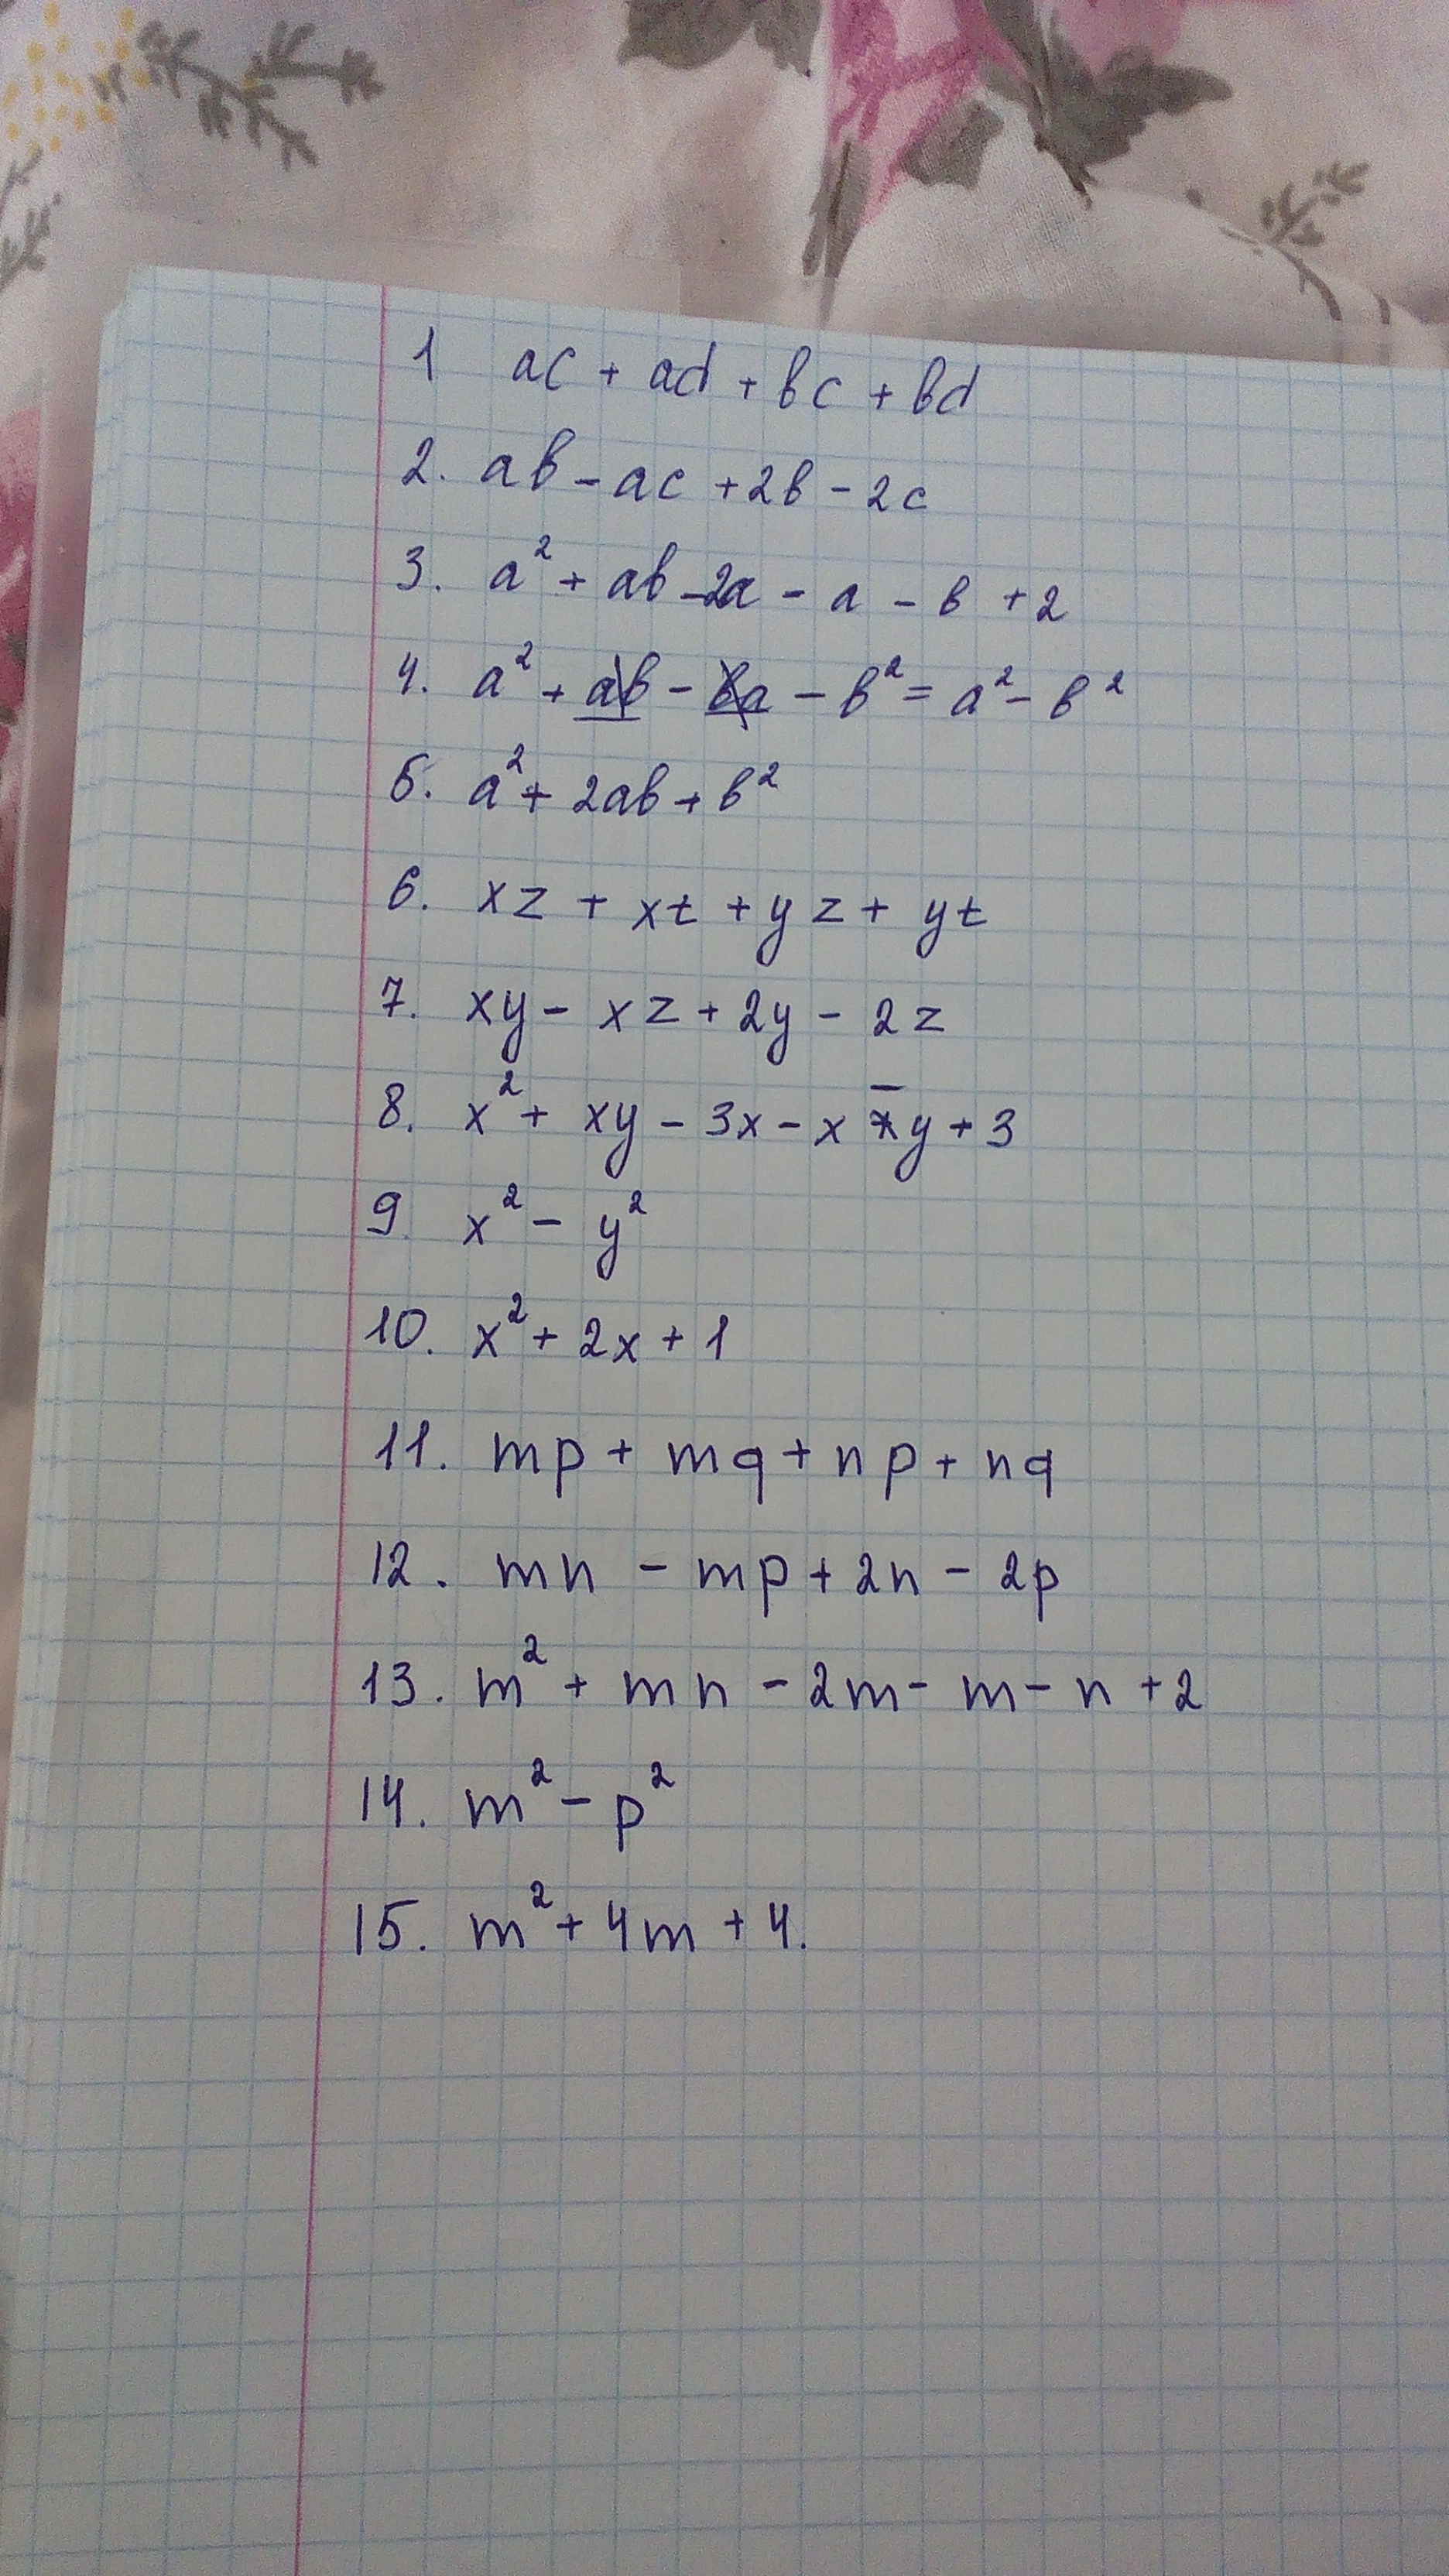 1 ac + ad + bc + bd
2. ab - ac + 2b - 2c
3. a² + ab - 2a - a - b + 2
4. a² + ab - ba - b² = a² - b²
5. a² + 2ab + b²
6. xz + xt + yz + yt
7. xy - xz + 2y - 2z
8. x² + xy - 3x - x - y + 3
9. x² - y²
10. x² + 2x + 1
11. mp + mq + np + nq
12. mn - mp + 2n - 2p
13. m² + mn - 2m - m - n + 2
14. m² - p²
15. m² + 4m + 4.